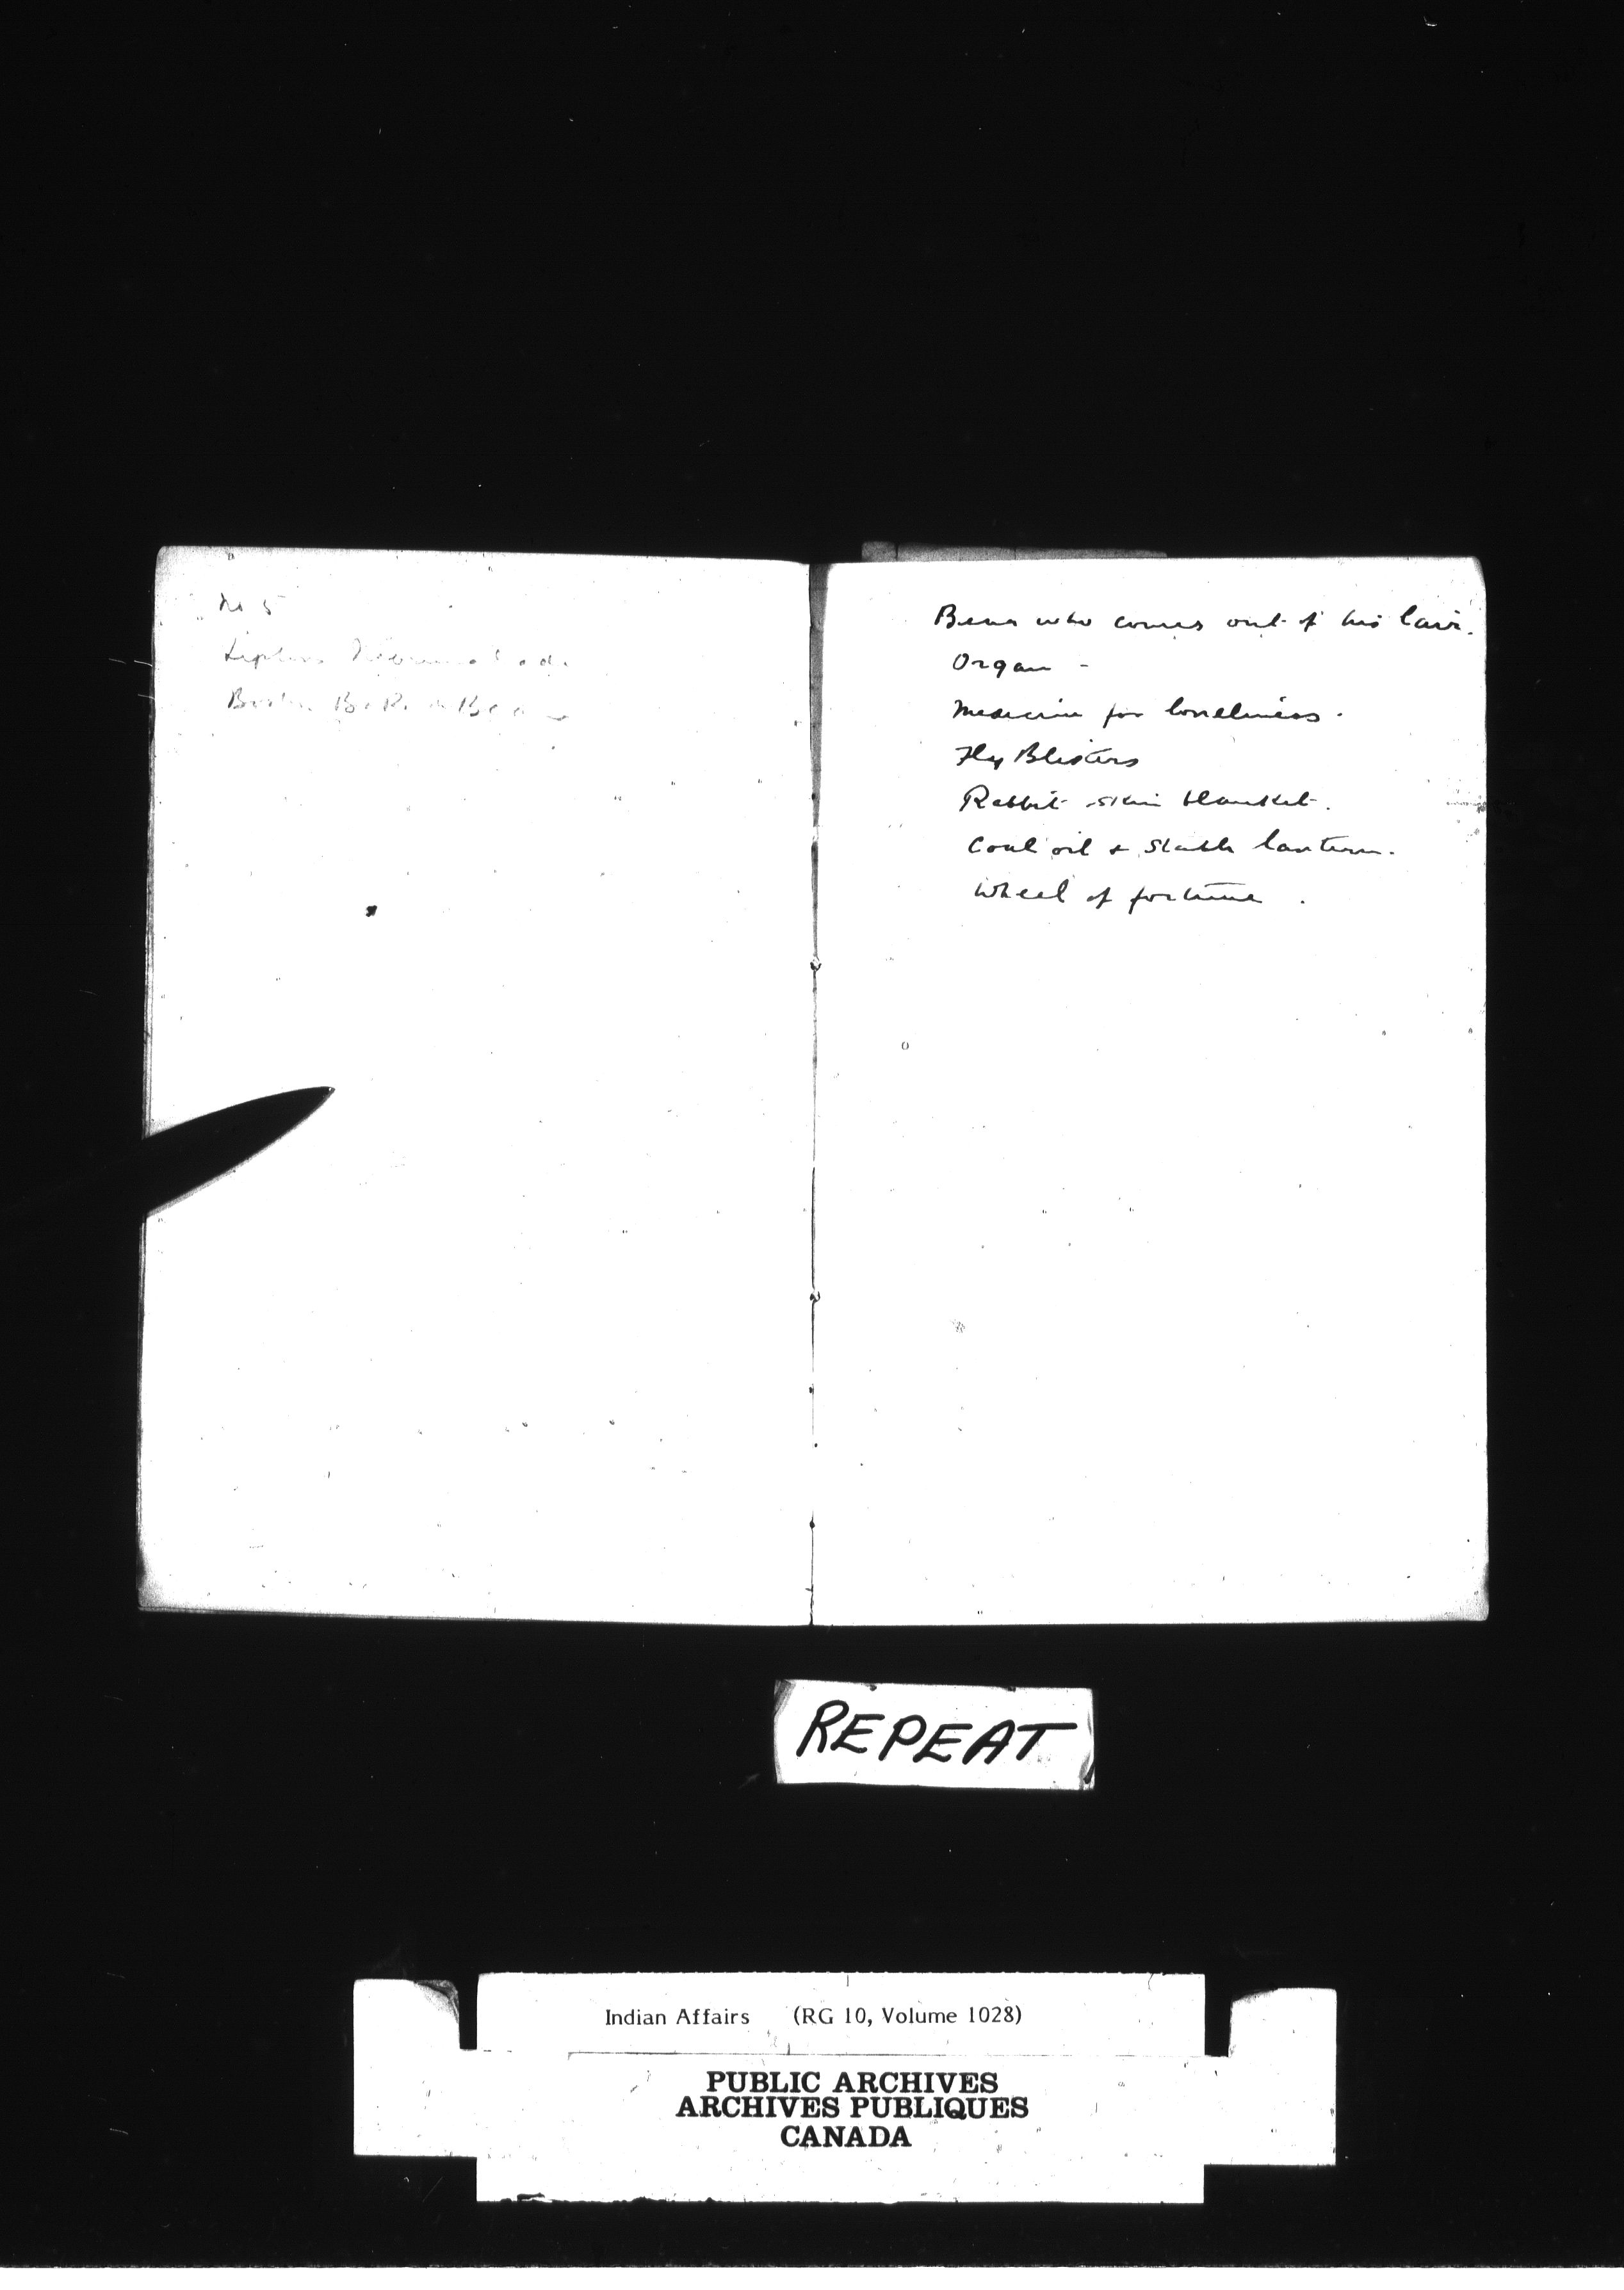 No 5
Boston B & R Beans
Bear who comes out of his lair.
Organ -
Medicine for loneliness.
Fly Blisters
Rabbit skin blanket.
Coal oil & Stable lantern.
Wheel of fortune.
REPEAT
Indian Affairs (RG 10, Volume 1028)
PUBLIC ARCHIVES
ARCHIVES PUBLIQUES
CANADA